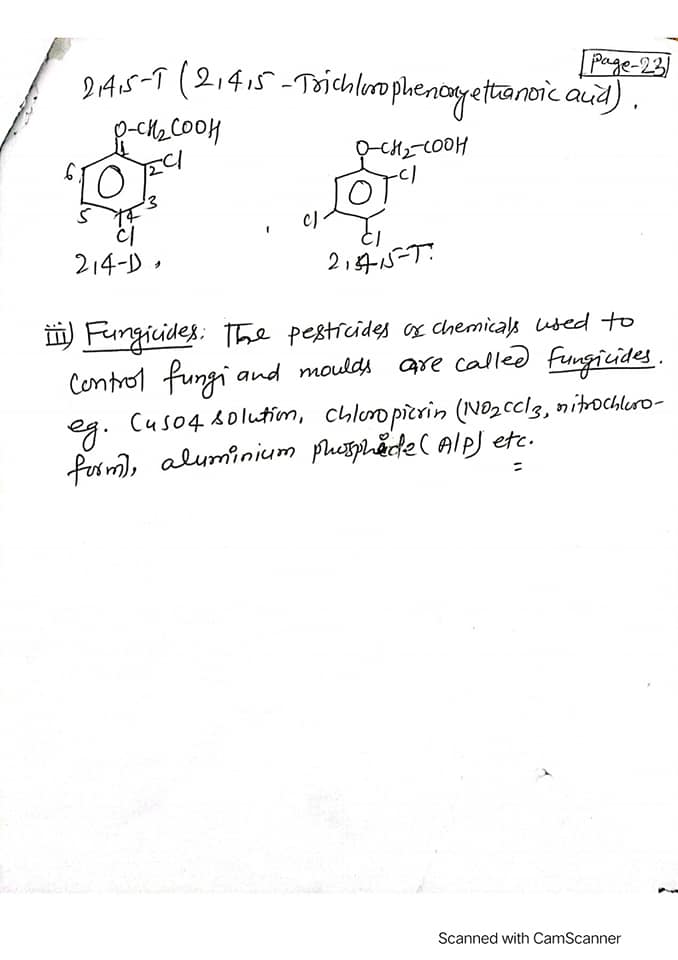 Page-23
2,4,5-T (2,4,5-Trichlorophenoxyethanoic acid).
O-CH2COOH
O-CH2-COOH
1
6
2
Cl
Cl
5
3
4
Cl
Cl
Cl
2,4-D,
2,4,5-T.
iii) Fungicides: The pesticides or chemicals used to
control fungi and moulds are called fungicides.
eg. CuSO4 solution, chloropicrin (NO2CCl3, nitrochloro-
form), aluminium phosphide (AlP) etc.
=
Scanned with CamScanner